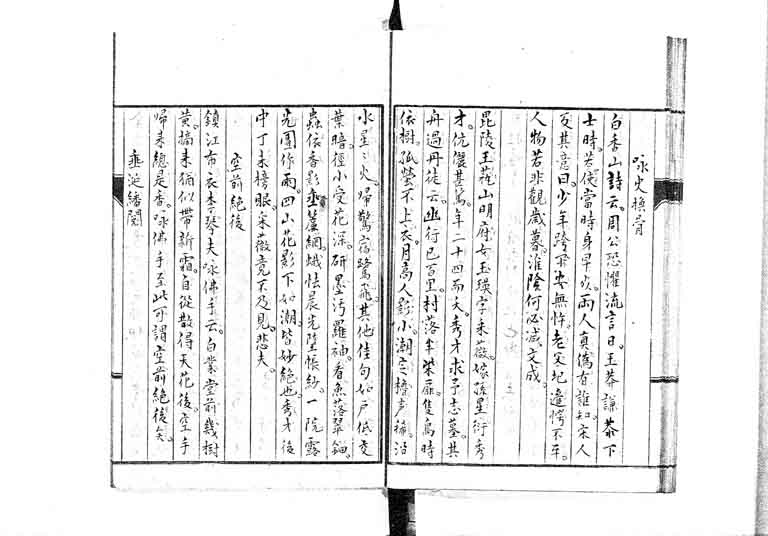 咏史換骨
白香山詩云。周公恐懼流言日。王莽謙恭下
士時。若使當時身早歿。兩人真偽有誰知。宋人
反其意曰。少年胯下安無忤。老父圯邊愕不平。
人物若非觀歲暮。淮陰何必減文成。
毘陵王藕山明府女玉瑛字采薇。嫁孫星衍秀
才。伉儷甚篤。年二十四而夭。秀才求予志墓。其
舟過丹徒云。幽行已百里。村落半柴扉。隻鳥時
依樹。孤螢不上衣。月高人影小。潮定櫓声稀。沿
水星〻火。歸驚宿鷺飛。其他佳句如户低交
葉暗。徑小受花深。研墨污羅袖。看魚落翠鈿。
蟲依香影垂簾網。蛾怯晨光墮帳紗。一院露
光團作雨。四山花影下如潮。皆妙絶也。秀才後
中丁未榜眼。采薇竟不及見。悲夫。
空前絶後
鎮江布衣李琴夫咏佛手云。白業堂前幾樹
黄。摘来猶似帶新霜。自從散得天花後。空手
歸来總是香。咏佛手至此。可謂空前絶後矣。
垂涎繙閱